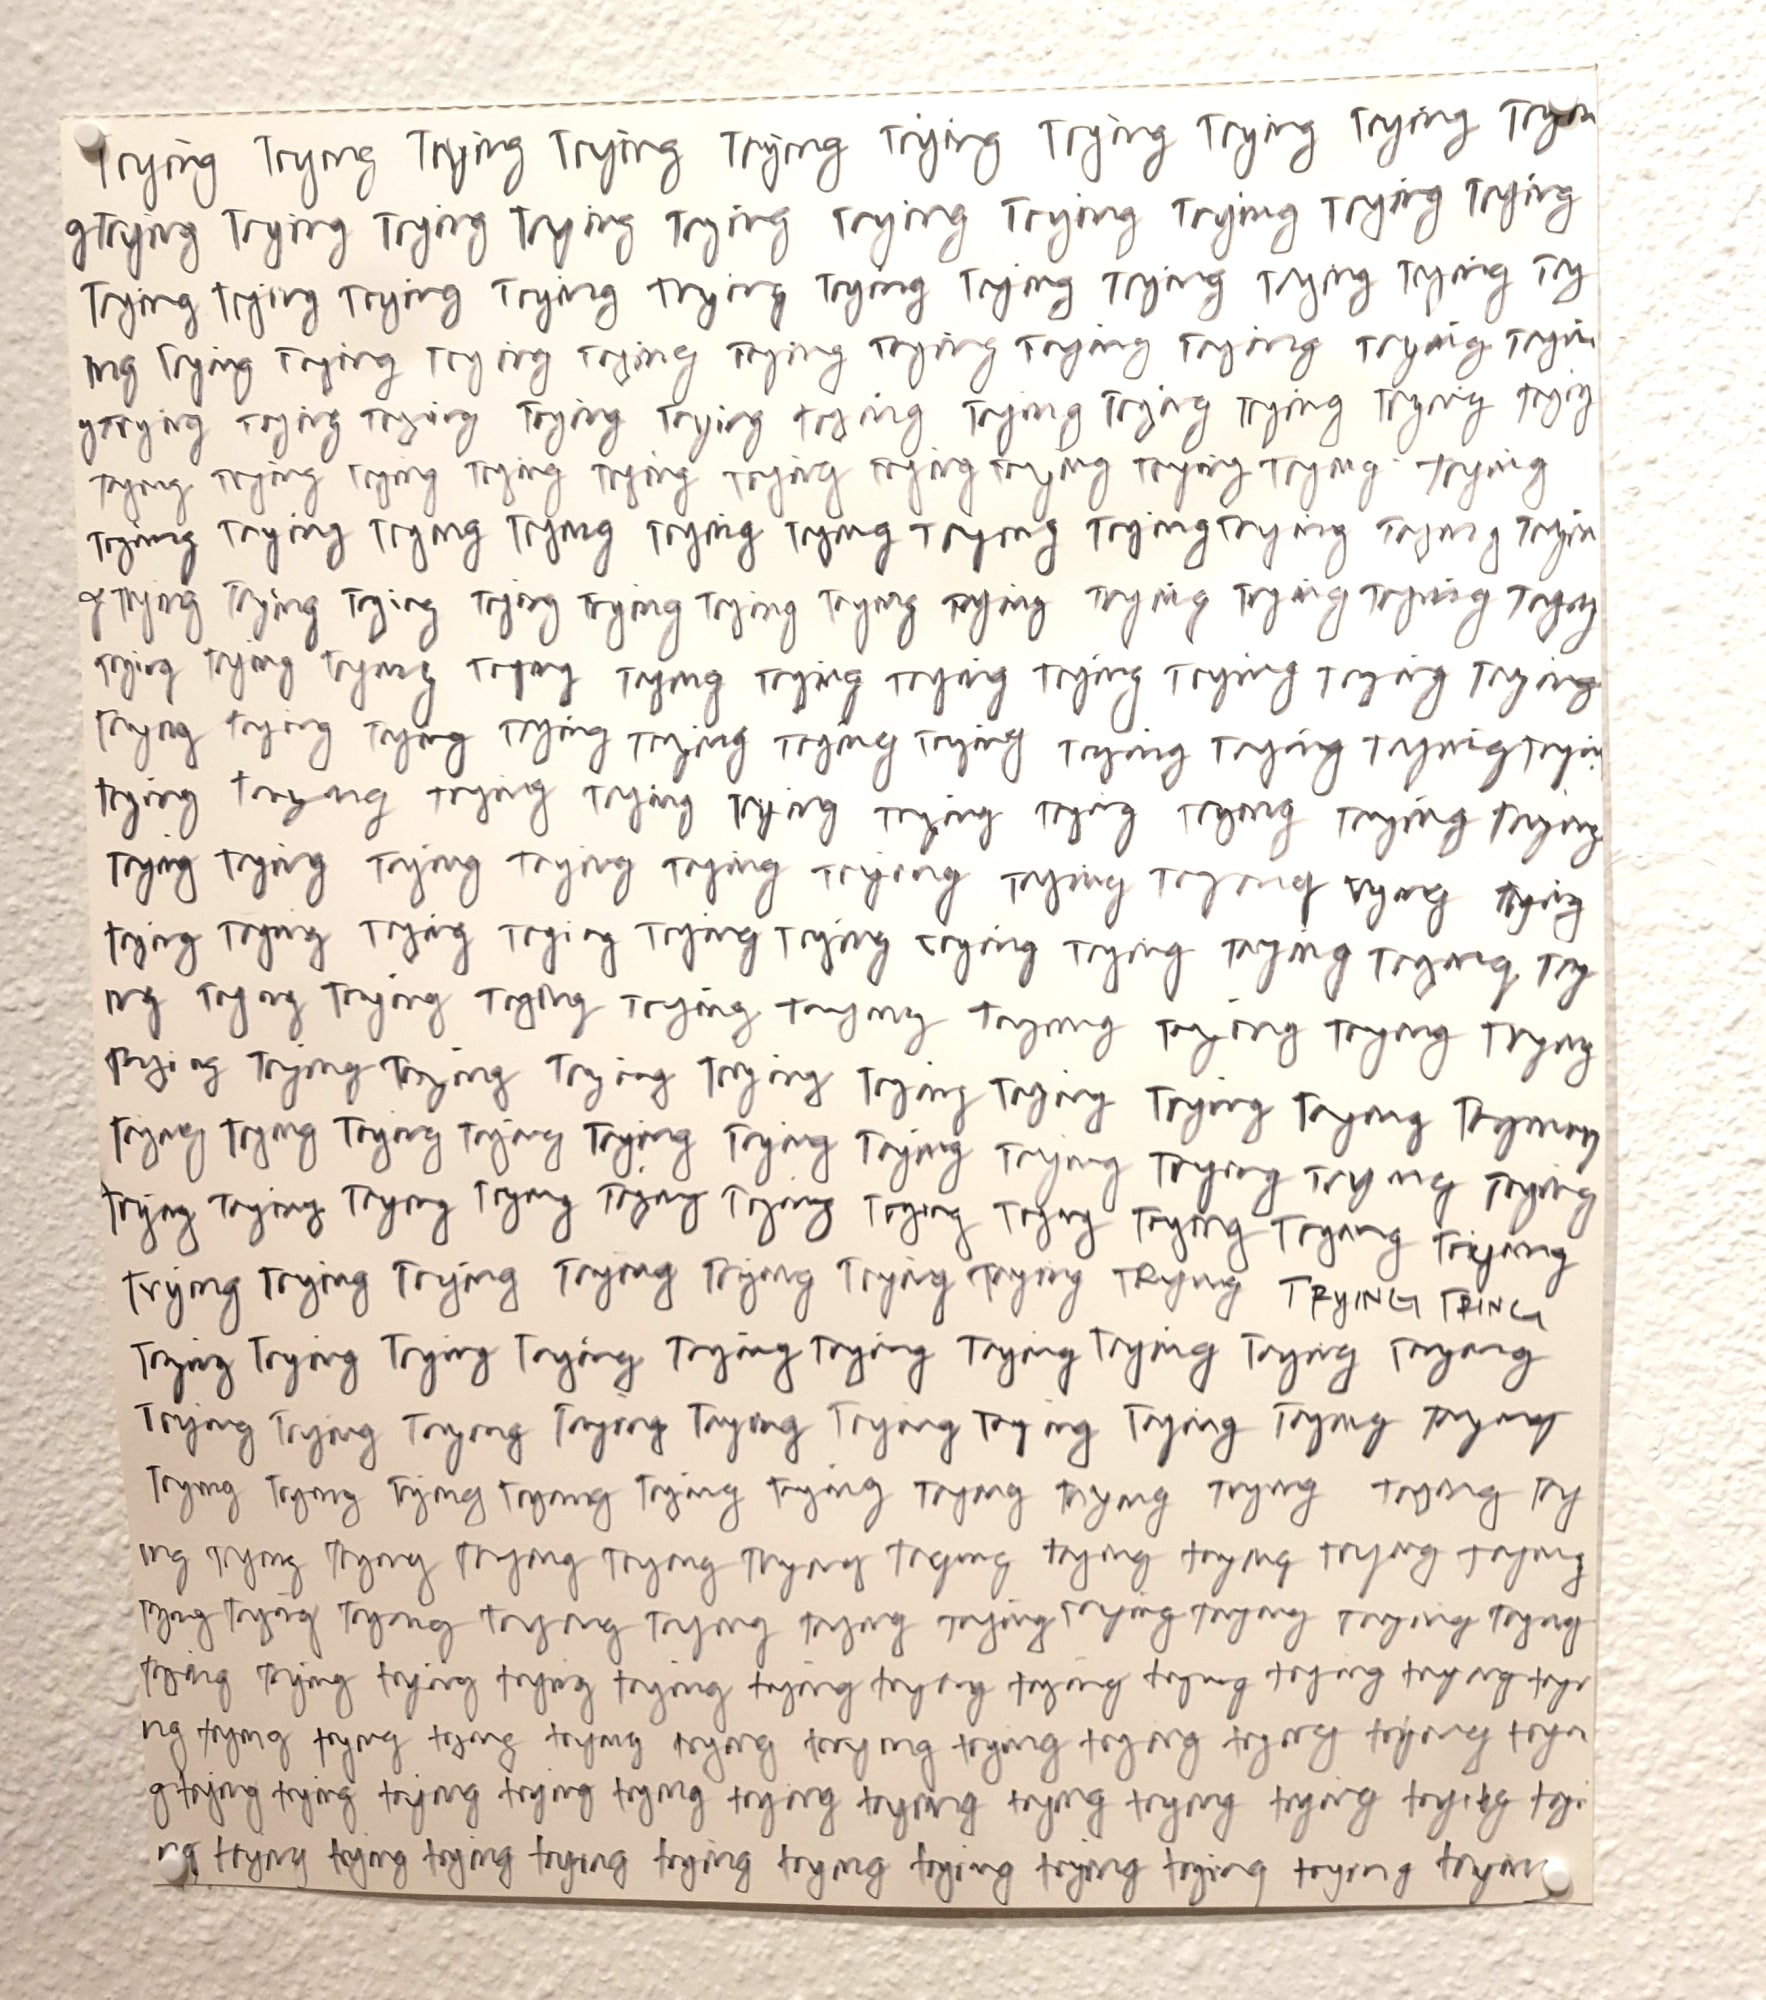 Trying Trying Trying Trying Trying Trying Trying Trying Trying Tryin
g Trying Trying Trying Trying Trying Trying Trying Trying Trying Trying
Trying trying Trying Trying trying Trying Trying Trying Trying Trying Try
ing Trying Trying Trying Trying Trying Trying Trying Trying Trying Tryin
g trying Trying Trying Trying Trying trying Trying Trying Trying Trying trying
Trying Trying Trying Trying Trying Trying Trying Trying Trying Trying trying
Trying Trying Trying Trying Trying Trying Trying Trying Trying Trying Tryin
g Trying Trying Trying Trying Trying Trying Trying Trying Trying Trying Trying Trying
Trying Trying Trying Trying Trying Trying Trying Trying Trying Trying Trying
Trying trying Trying Trying Trying Trying Trying Trying Trying Trying Tryin
trying trying Trying Trying Trying Trying Trying Trying Trying Trying
Trying Trying Trying Trying Trying Trying Trying Trying trying trying
trying Trying Trying Trying Trying Trying trying Trying Trying Trying Try
ing Trying Trying Trying Trying trying trying Trying Trying Trying
Trying Trying Trying Trying Trying Trying Trying Trying Trying Trying
Trying Trying Trying Trying Trying Trying Trying Trying Trying Trying Trying
trying Trying Trying Trying Trying Trying Trying Trying Trying Trying Trying
trying Trying Trying Trying Trying Trying Trying TRying TRYING TRING
Trying Trying Trying Trying Trying Trying Trying Trying Trying Trying
Trying Trying Trying Trying Trying Trying Trying Trying Trying Trying
Trying Trying Trying Trying Trying Trying Trying Trying Trying trying Try
ing Trying Trying Trying Trying Trying Trying trying trying trying trying
Trying Trying Trying trying Trying trying Trying Trying trying Trying Trying
Trying Trying trying trying trying trying trying trying trying trying trying tryi
ng trying trying trying trying trying trying trying trying trying trying tryin
g trying trying trying trying trying trying trying trying trying trying trying tryi
ng trying trying trying trying trying trying trying trying trying trying trying